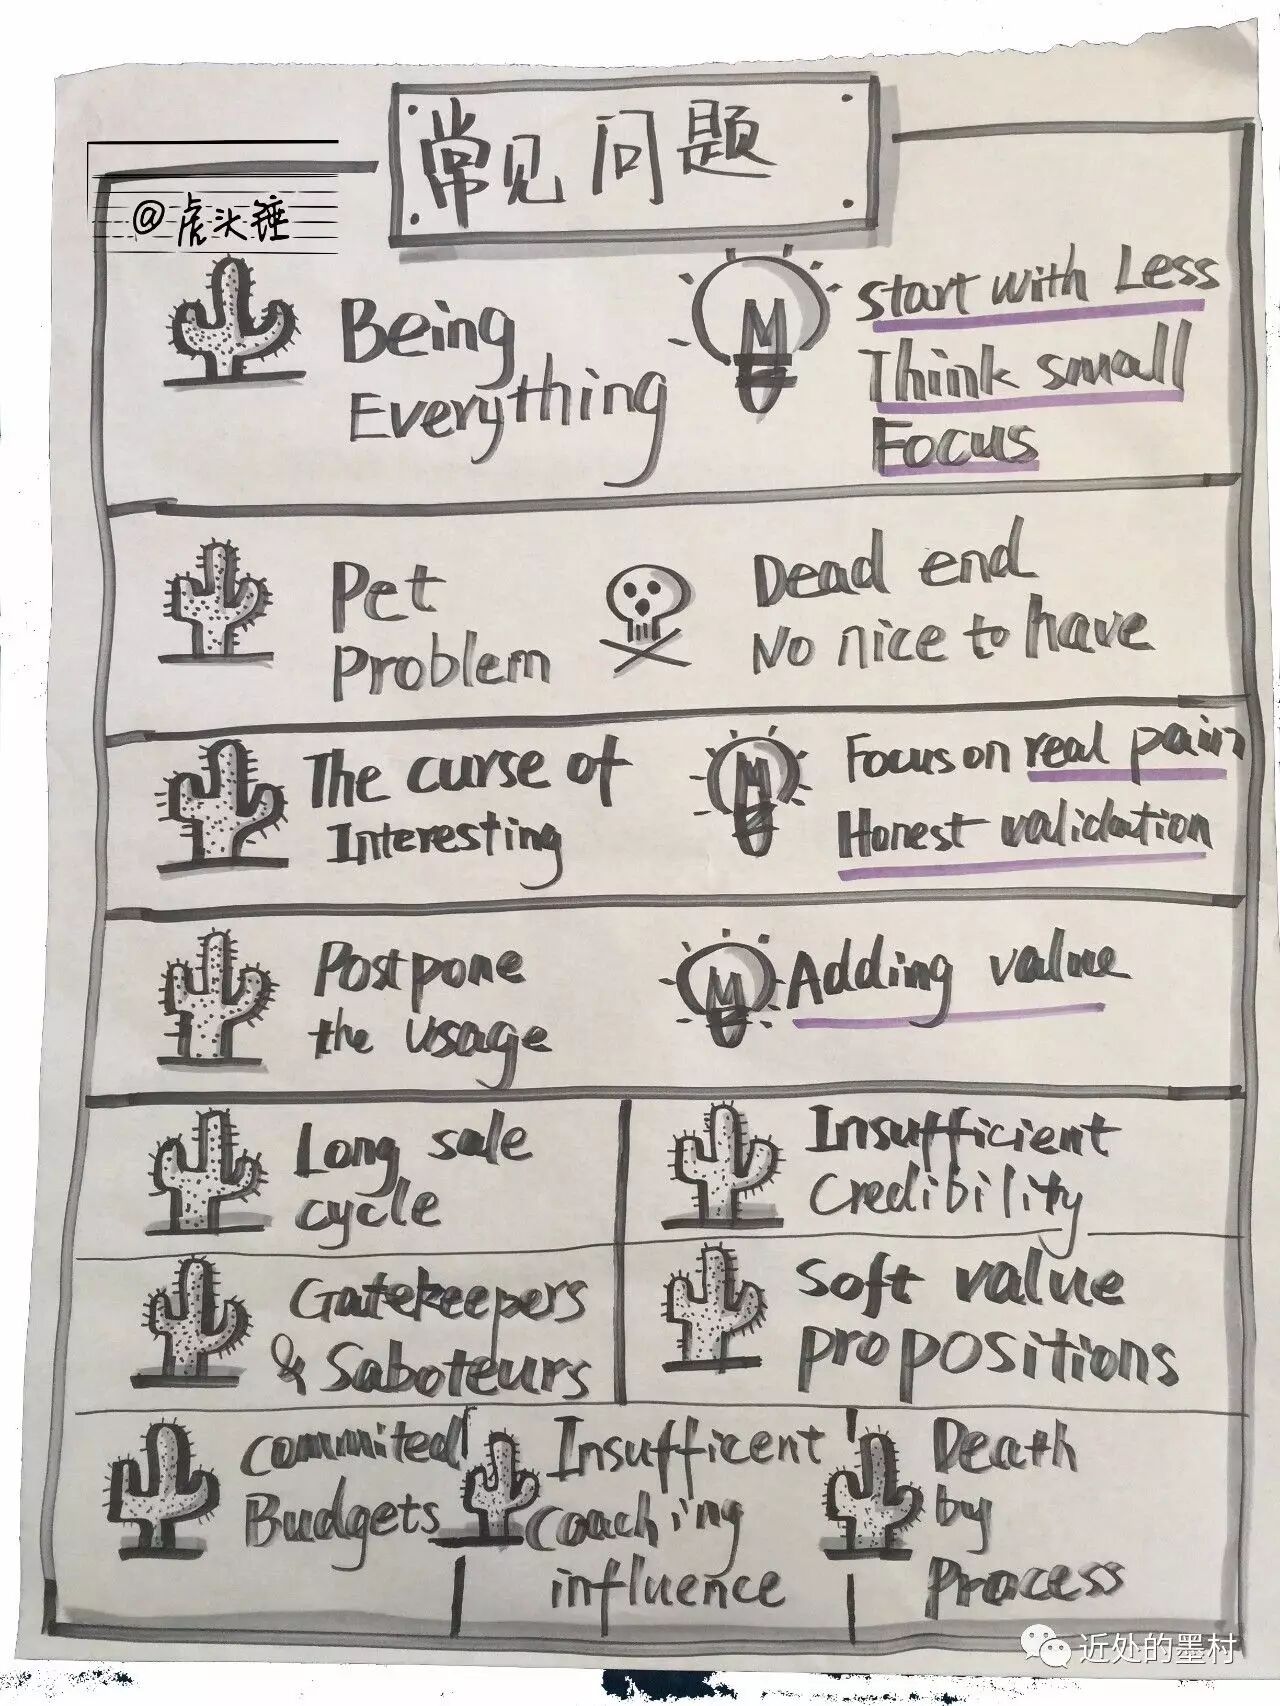 常见问题
@虎头锤
Being
Everything
Start with Less
Think small
Focus
Pet
Problem
Dead end
No nice to have
The curse of
Interesting
Focus on real pain
Honest validation
Postpone
the usage
Adding value
Long sale
cycle
Insufficient
Credibility
Gatekeepers
& Saboteurs
Soft value
propositions
Commited
Budgets
Insufficent
Coaching
influence
Death
by
Process
近处的墨村